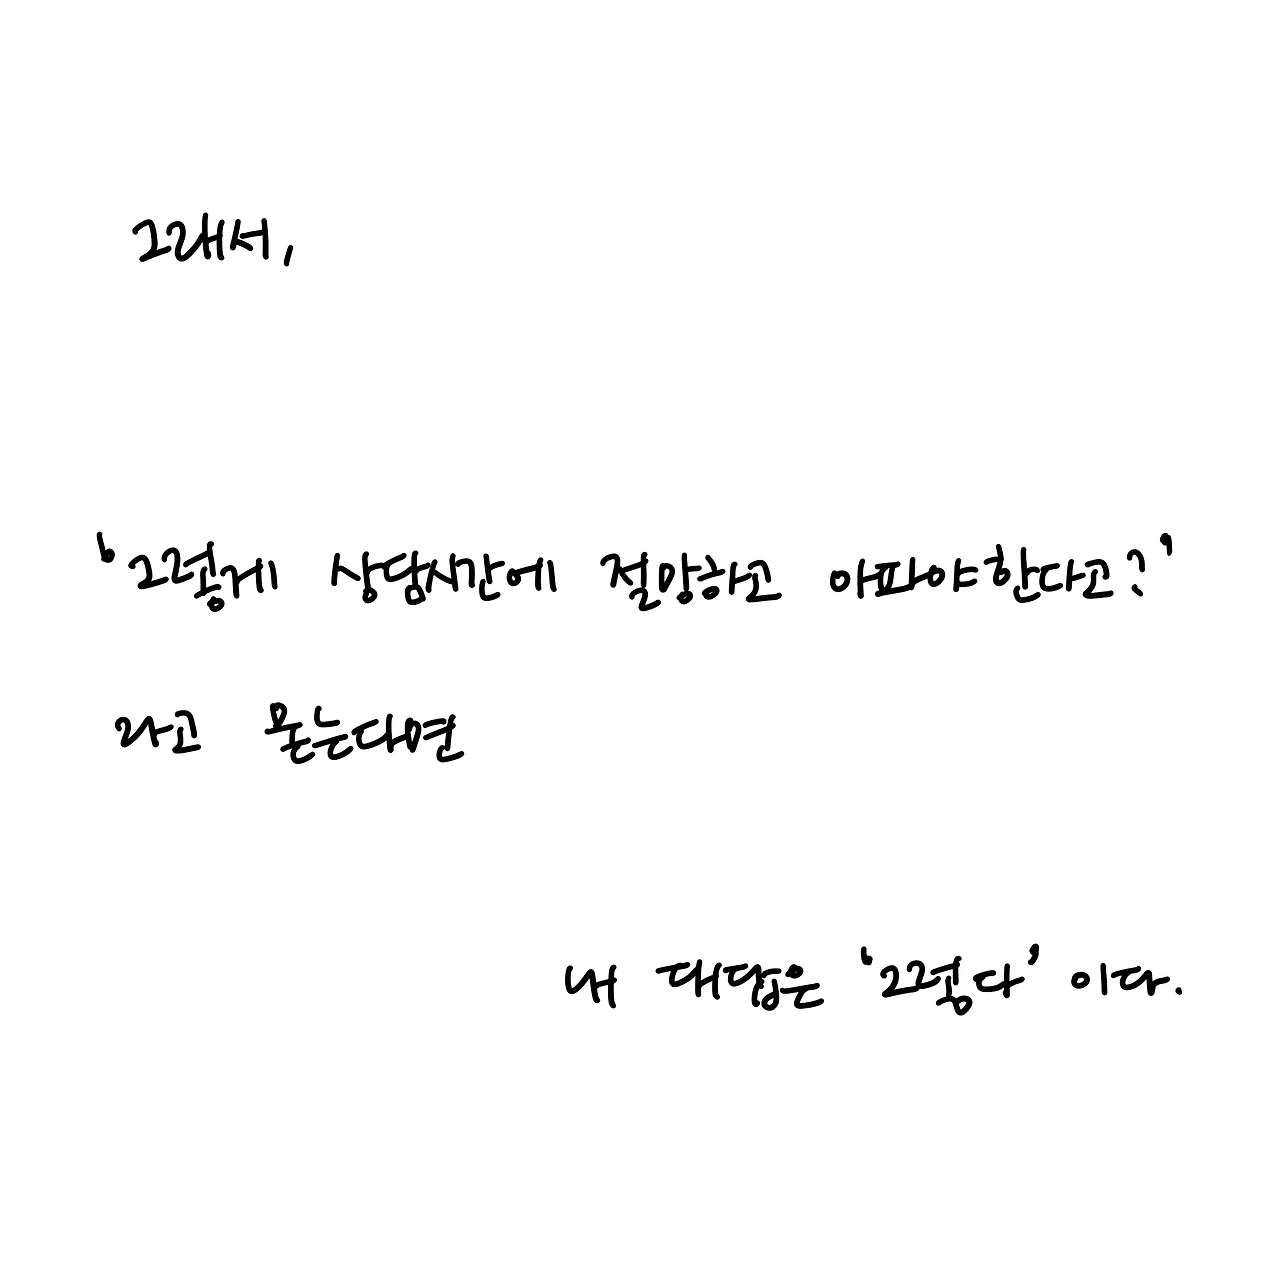 그래서,
'그렇게 상담시간에 절망하고 아파야한다고?'
라고 묻는다면
내 대답은 '그렇다' 이다.